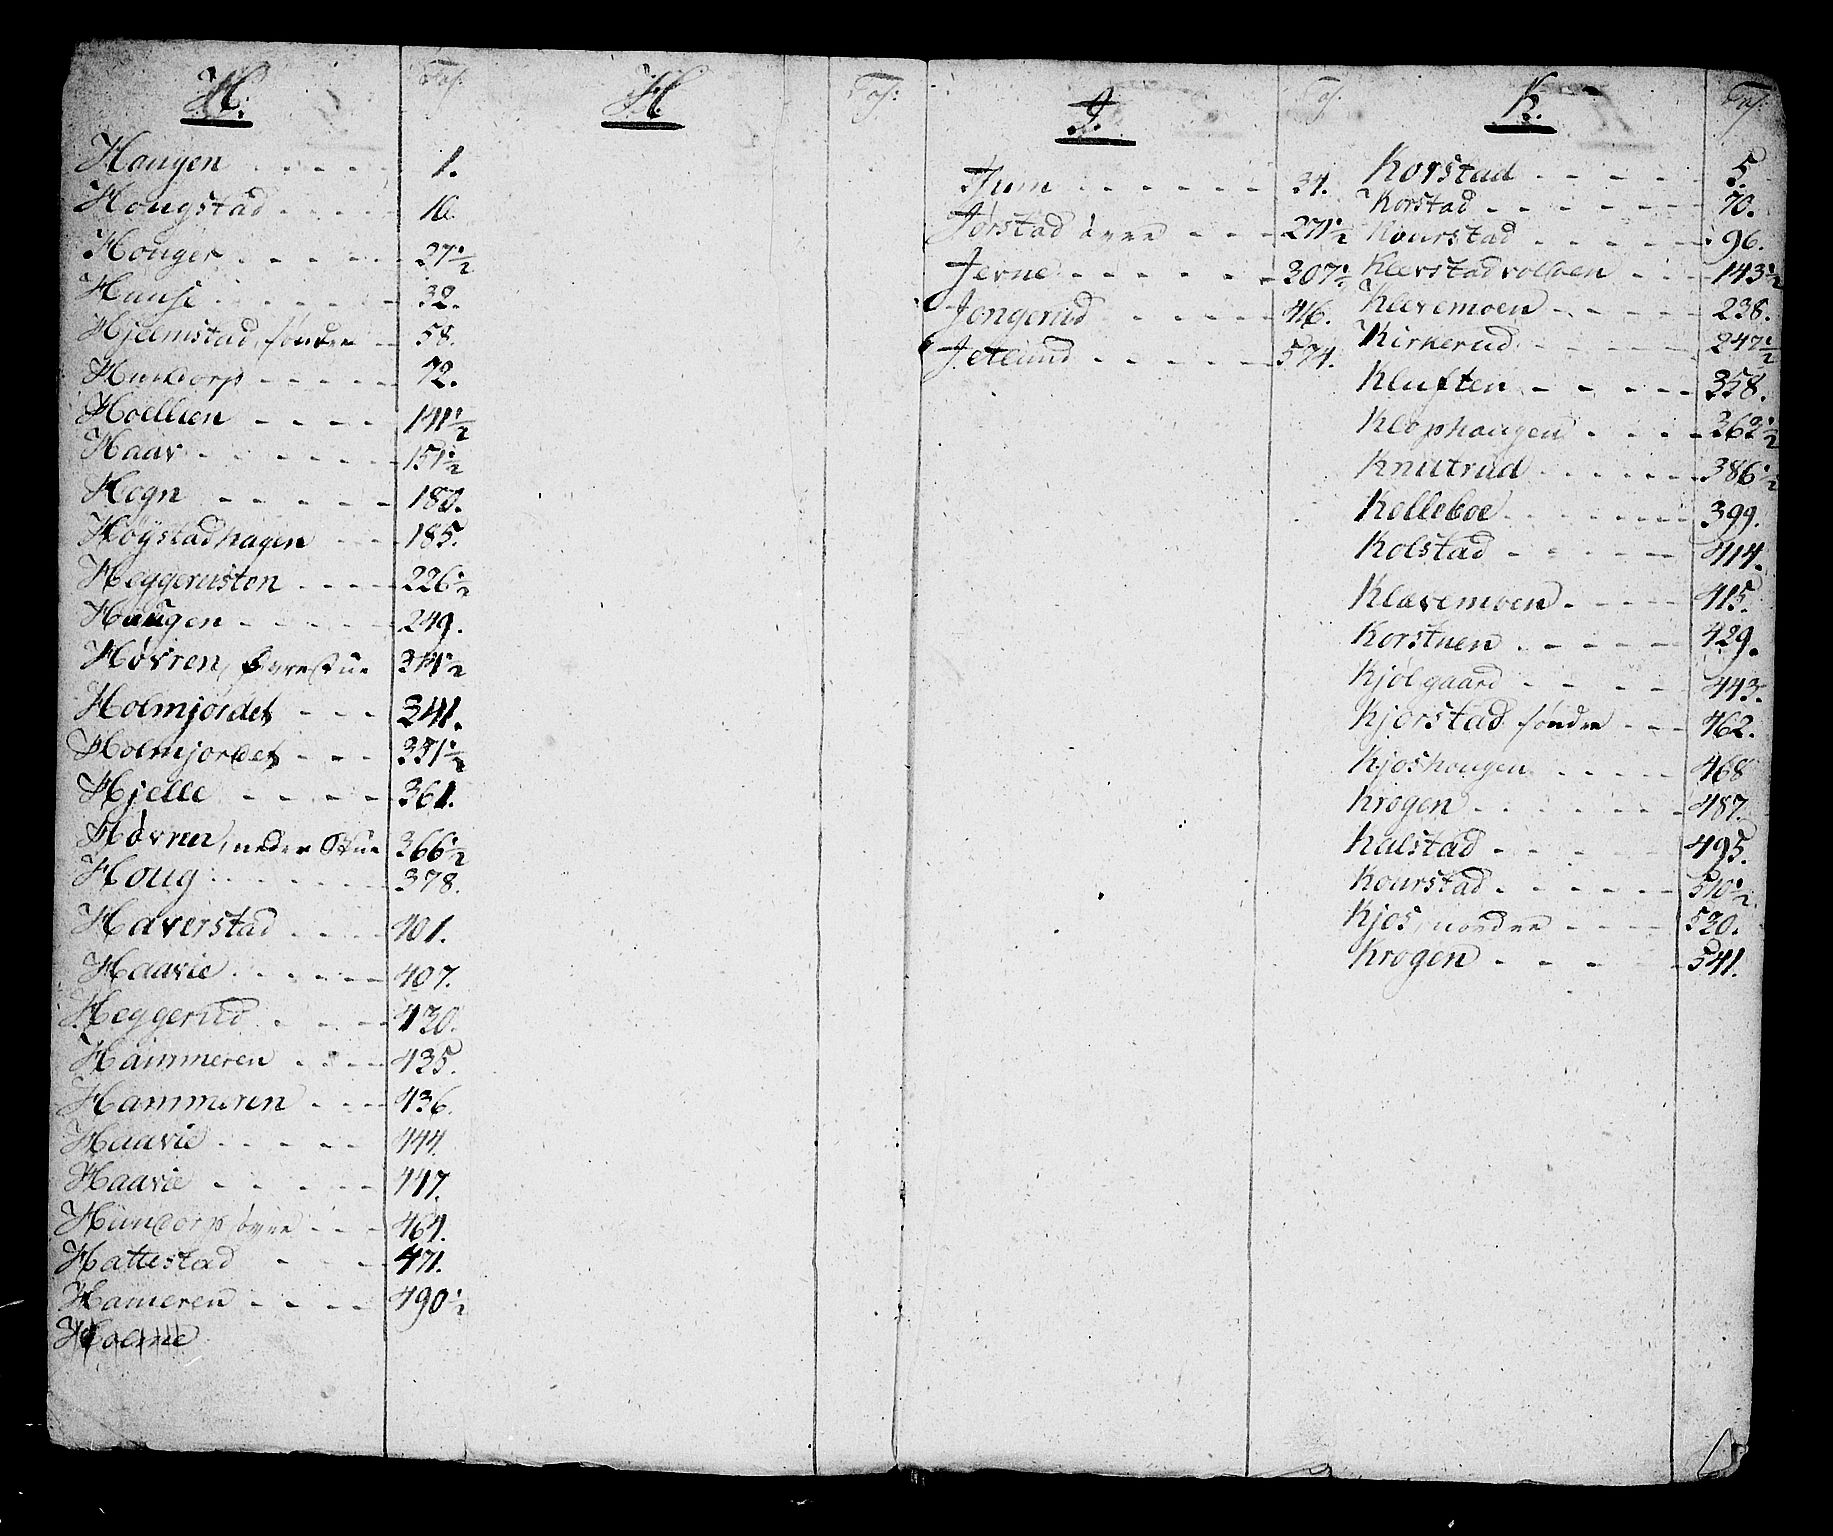 H. Fol:
Hougen - - - - - 1.
Hougstad - - - - 16.
Houger - - - - - 27 1/2
Hunse - - - - - 32.
Hjelmstad, søndre - - 58.
Hundorp - - - - - 72.
Hoellien - - - - 141 1/2
Haav - - - - - 151 1/2
Hogn - - - - - 180.
Høgstadhagen - - - 185.
Heggerusten - - - - 226 1/2
Haugen - - - - - 249.
Høvren, øvre Stue
Holmjordet - - - 341.
Holmjordet - - - 351 1/2
Hjelle - - - - - 361.
Høvren, neder Stue 366 1/2
Houg - - - - - 378.
Haverstad - - - - 401.
Haavie - - - - - 407.
Heggerud - - - - 430.
Hammeren - - - - 435.
Hammeren - - - 436.
Haavie - - - - - 444.
Haavie - - - - - 447.
Hundorp øvre - - - 464.
Hattestad - - - - 471.
Hameren - - - - 490 1/2
Holme
H. Fol:
I. Fol:
- - - - - - 34.
Jørstad øvre - - - 271 1/2
Jevne - - - - - 307 1/2
Jongerud - - - - - 416.
Jetlund - - - - - 574.
K. Fol:
Korstad - - - - - 5.
Korstad - - - - - - 70.
Kourstad - - - - - 96.
Klevstadvolden - - - 143 1/2
Klevemoen - - - - - 238.
Kirkerud - - - - - 247 1/2
Kluften - - - - - 358.
Klophougen - - - - 362 1/2
Knutrud - - - - - 386 1/2
Kolleboe - - - - - - 399.
Kolstad - - - - - 414.
Klavemoen - - - - 415.
Korstuen - - - - - 429.
Kjølgaard - - - - - 443.
Kjorstad søndre - - - 462.
Kjoshougen - - - - - 468
Krogen - - - - - - 487.
Kalstad - - - - - 495.
Kourstad - - - - - 510 1/2
Kjos, nordre - - - - 520.
Krogen - - - - - 541.